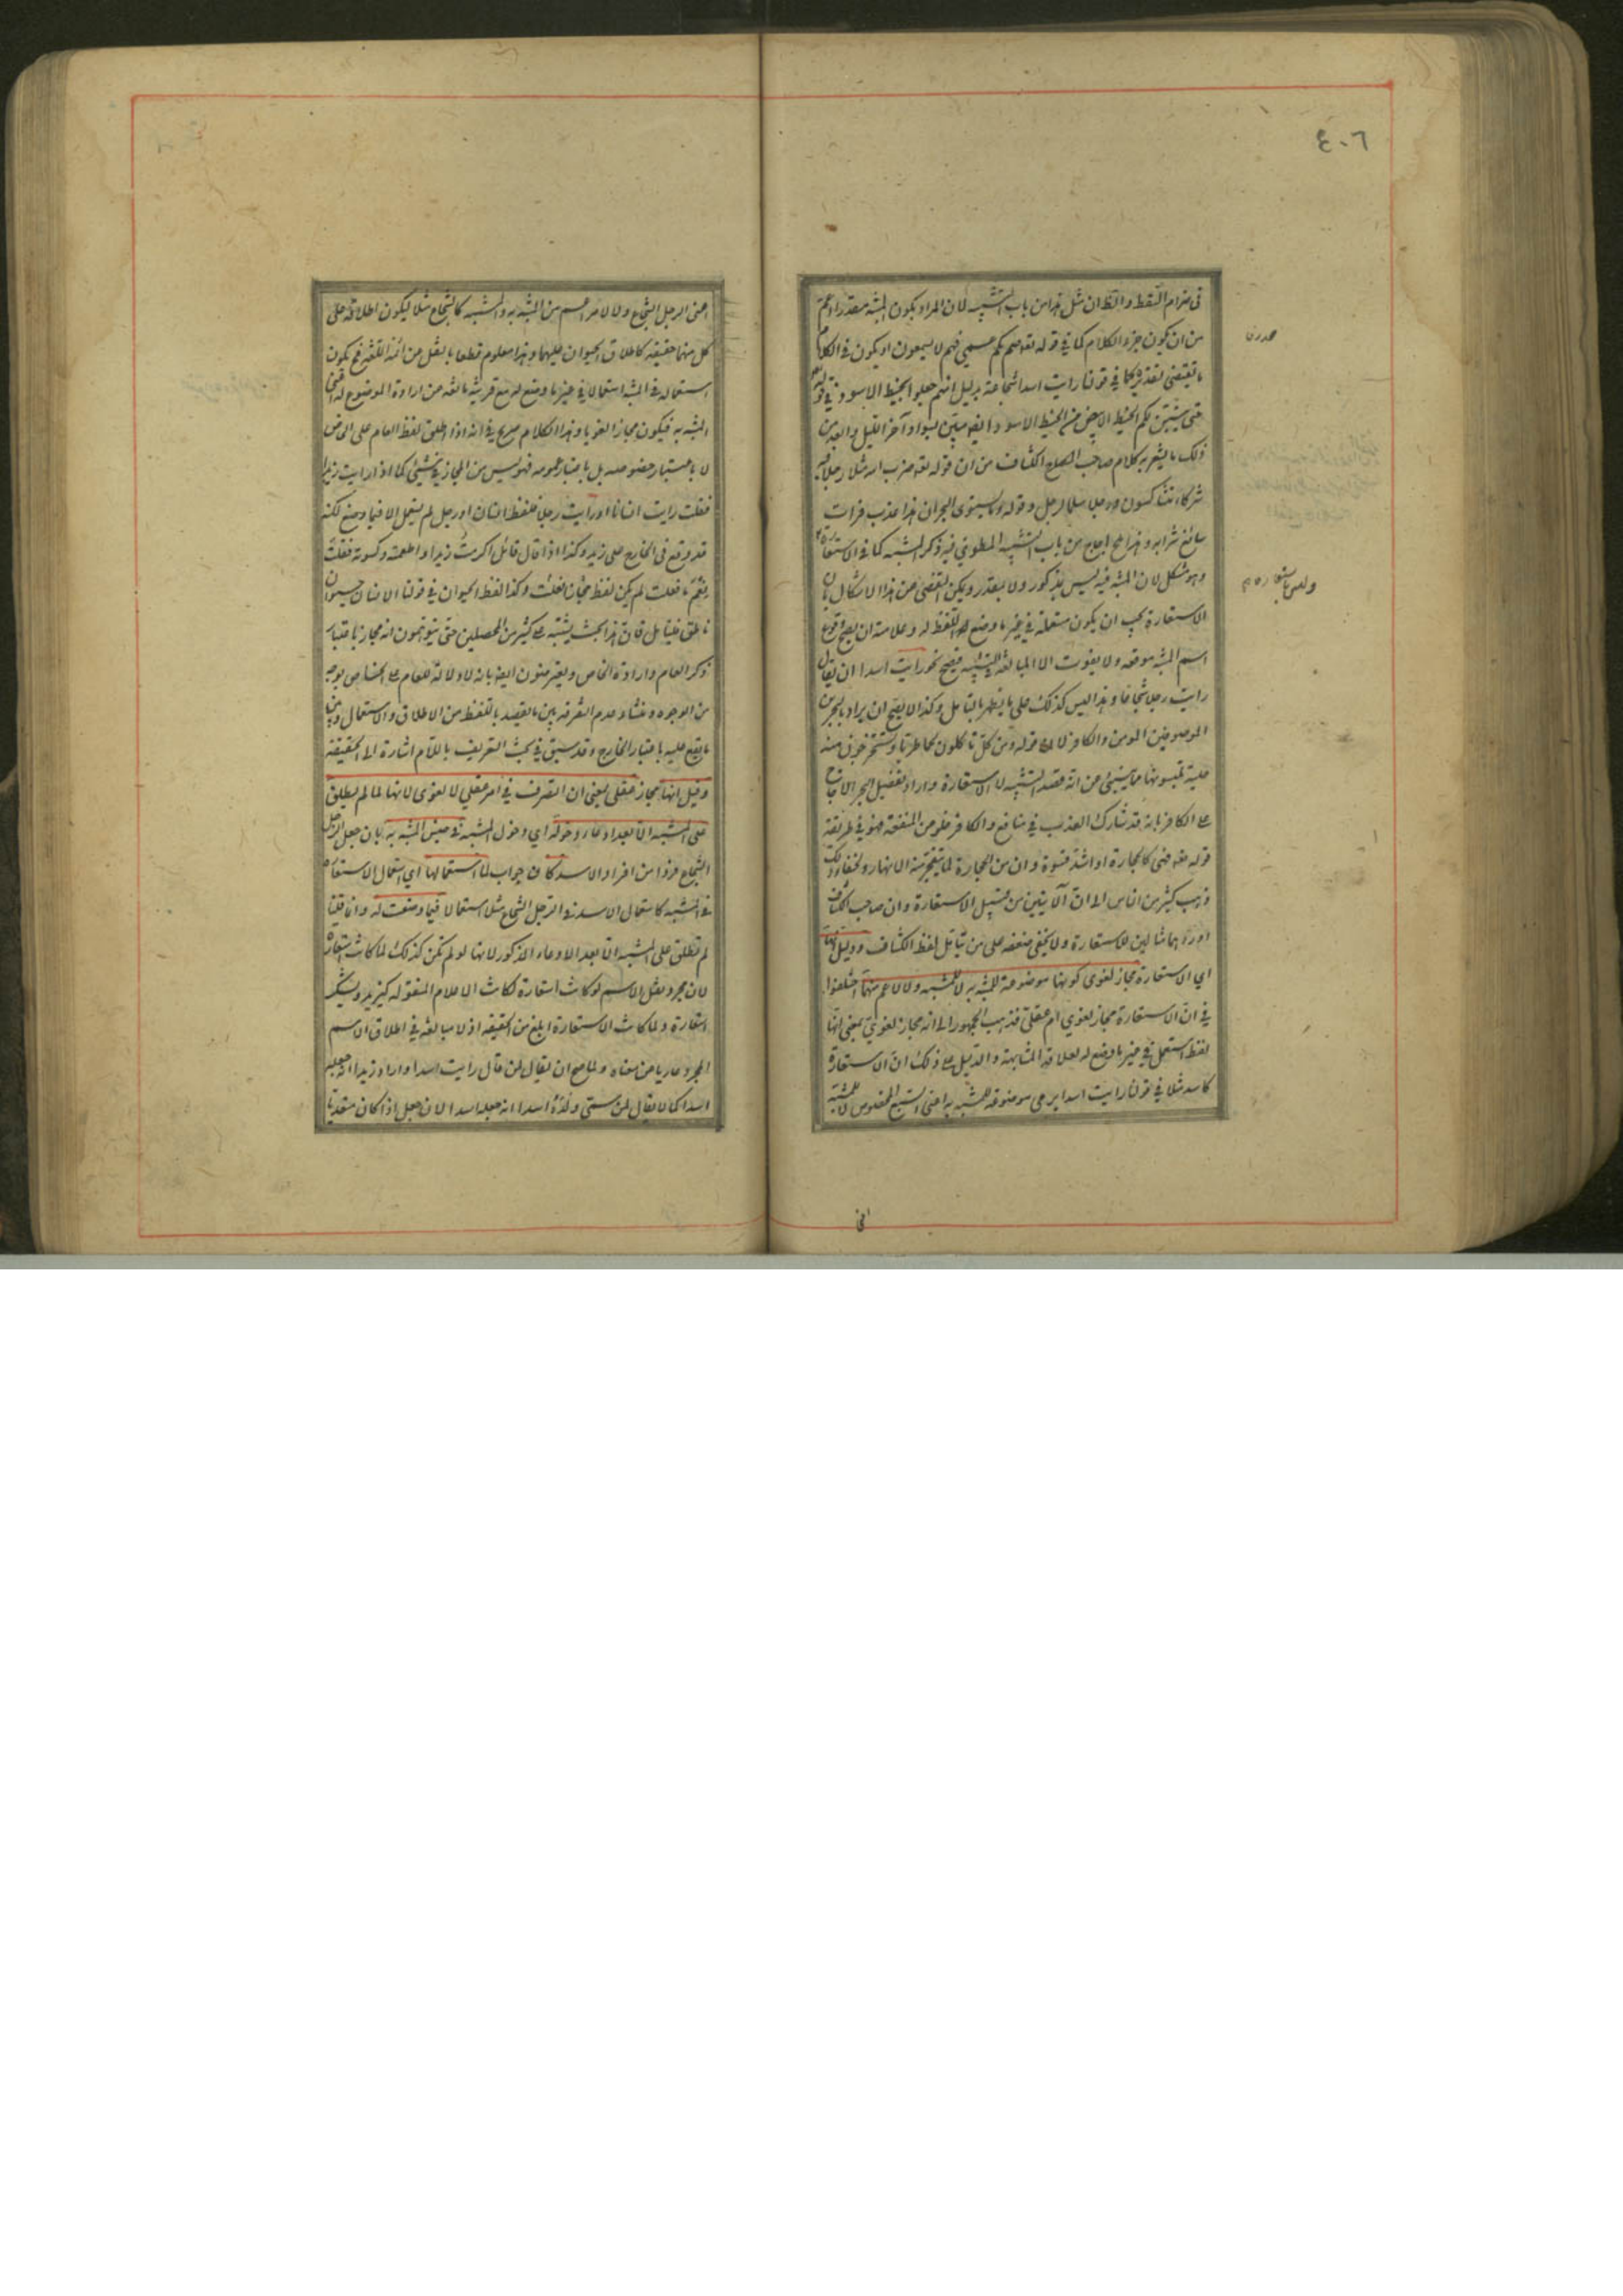 ٤٠٦
في ضرام السقط والظ ان مثل هذا من باب التشبيه لان المراد بكون المشبه مقدرا اعم
من ان يكون جزء الكلام كما في قوله تعه صم بكم عمي فهم لا يسمعون او يكون في الكلام
ما يقتضي تقديره كما في قولنا رايت اسدا شجاعة بدليل انهم جعلوا الخيط الاسود في قوله
حتى يتبين لكم الخيط الابيض من الخيط الاسود
ذلك ما يشعر به كلام صاحب الكشاف من ان قوله تعه ضرب الله مثلا رجلا فيه
شركاء متشاكسون ورجلا سلما لرجل وقوله وما يستوى البحران هذا عذب فرات
سائغ شرابه وهذا ملح اجاج من باب التشبيه المطوي فيه ذكر المشبه كما في الاستعارة
وهو مشكل لان المشبه فيه ليس بمذكور ولا مقدر ويمكن التفصى عن هذا الاشكال بان
الاستعارة يجب ان يكون مستعملة في غير ما وضع اللفظ له وعلامته ان يصح وقوع
اسم المشبه موقعه ولا يفوت الا المبالغة في التشبيه فيصح نحو رايت اسدا ان يقال
رايت رجلا شجاعا وهذا ليس كذلك على ما يظهر بالتامل وكذا لا يصح ان يراد بالبحرين
الموصوفين المومن والكافر لان قوله ومن كل تاكلون لحما طريا وتستخرجون منه
حلية تلبسونها مما ينبئ عن انه قصد التشبيه لا الاستعارة واراد تفضيل البحر الاجاج
على الكافر بانه قد شارك العذب في منافع والكافر خلو من المنفعة فهو في طريقة
قوله تعه فهى كالحجارة او اشد قسوة وان من الحجارة لما يتفجر منه الانهار ولخفاء ذلك
ذهب كثير من الناس الى ان الآيتين من قبيل الاستعارة وان صاحب الكشاف
اوردهما مثالين للاستعارة ولا يخفى ضعفه على من تامل لفظ الكشاف ودليل انها
اي الاستعارة مجاز لغوى كونها موضوعة للمشبه به لا للمشبه ولا لاعم منهما اختلفوا
في ان الاستعارة مجاز لغوي ام عقلي فذهب الجمهور الى انه مجاز لغوي بمعنى انها
لفظ استعمل في غير ما وضع له لعلاقة المشابهة والدليل على ذلك ان الاستعارة
كاسد مثلا في قولنا رايت اسدا يرمى موضوعة للمشبه به اعنى السبع المخصوص لا للمشبه
اعنى
اعنى الرجل الشجاع ولا لامر اعم من المشبه به والمشبه كالشجاع مثلا ليكون اطلاقه على
كل منهما حقيقة كاطلاق الحيوان عليهما وهذا معلوم قطعا بالنقل عن ائمة اللغة فح يكون
استعماله في المشبه استعمالا في غير ما وضع له مع قرينة مانعة عن ارادة الموضوع له اعنى
المشبه به فيكون مجازا لغويا وهذا الكلام صريح في انه اذا اطلق لفظ العام على الخاص
لا باعتبار خصوصه بل باعتبار عمومه فهو ليس من المجاز في شئ كما اذا رايت زيدا
فقلت رايت انسانا او رايت رجلا فلفظ انسان او رجل لم يستعمل الا فيما وضع له لكنه
قد وقع في الخارج على زيد وكذا اذا قال قائل اكرمت زيدا واطعمته وكسوته فقلت
نعم ما فعلت لم يكن لفظ فعلت مجازا وكذا لفظ الحيوان في قولنا الانسان حيوان
ناطق فليتامل فان هذا بحث يشتبه على كثير من المحصلين حتى يتوهمون انه مجاز باعتبار
ذكر العام وارادة الخاص ويعترضون ايضا بانه لا دلالة للعام على الخاص بوجه
من الوجوه ومنشاؤه عدم التفرقة بين ما يقصد باللفظ من الاطلاق والاستعمال وبين
ما يقع عليه باعتبار الخارج وقد سبق في بحث التعريف باللام اشارة الى الحقيقة
وقيل انها مجاز عقلى بمعنى ان التصرف في امر عقلي لا لغوى لانها لما لم يطلق
على المشبه الا بعد ادعاء دخوله اي دخول المشبه في جنس المشبه به بان جعل الرجل
الشجاع فردا من افراد الاسد كان جواب لما استعمالها اي استعمال الاستعارة
في المشبه كاستعمال الاسد في الرجل الشجاع مثلا استعمالا فيما وضعت له وانما قلنا
لم تطلق على المشبه الا بعد الادعاء المذكور لانها لو لم تكن كذلك لما كانت استعارة
لان مجرد نقل الاسم لو كانت استعارة لكانت الاعلام المنقولة كيزيد ويشكر
استعارة ولما كانت الاستعارة ابلغ من الحقيقة اذ لا مبالغة في اطلاق الاسم
المجرد عاريا من معناه ولما صح ان يقال لمن قال رايت اسدا واراد زيدا انه جعله
اسدا كما لا يقال لمن سمى ولده اسدا انه جعله اسدا لان جعل اذا كان متعديا